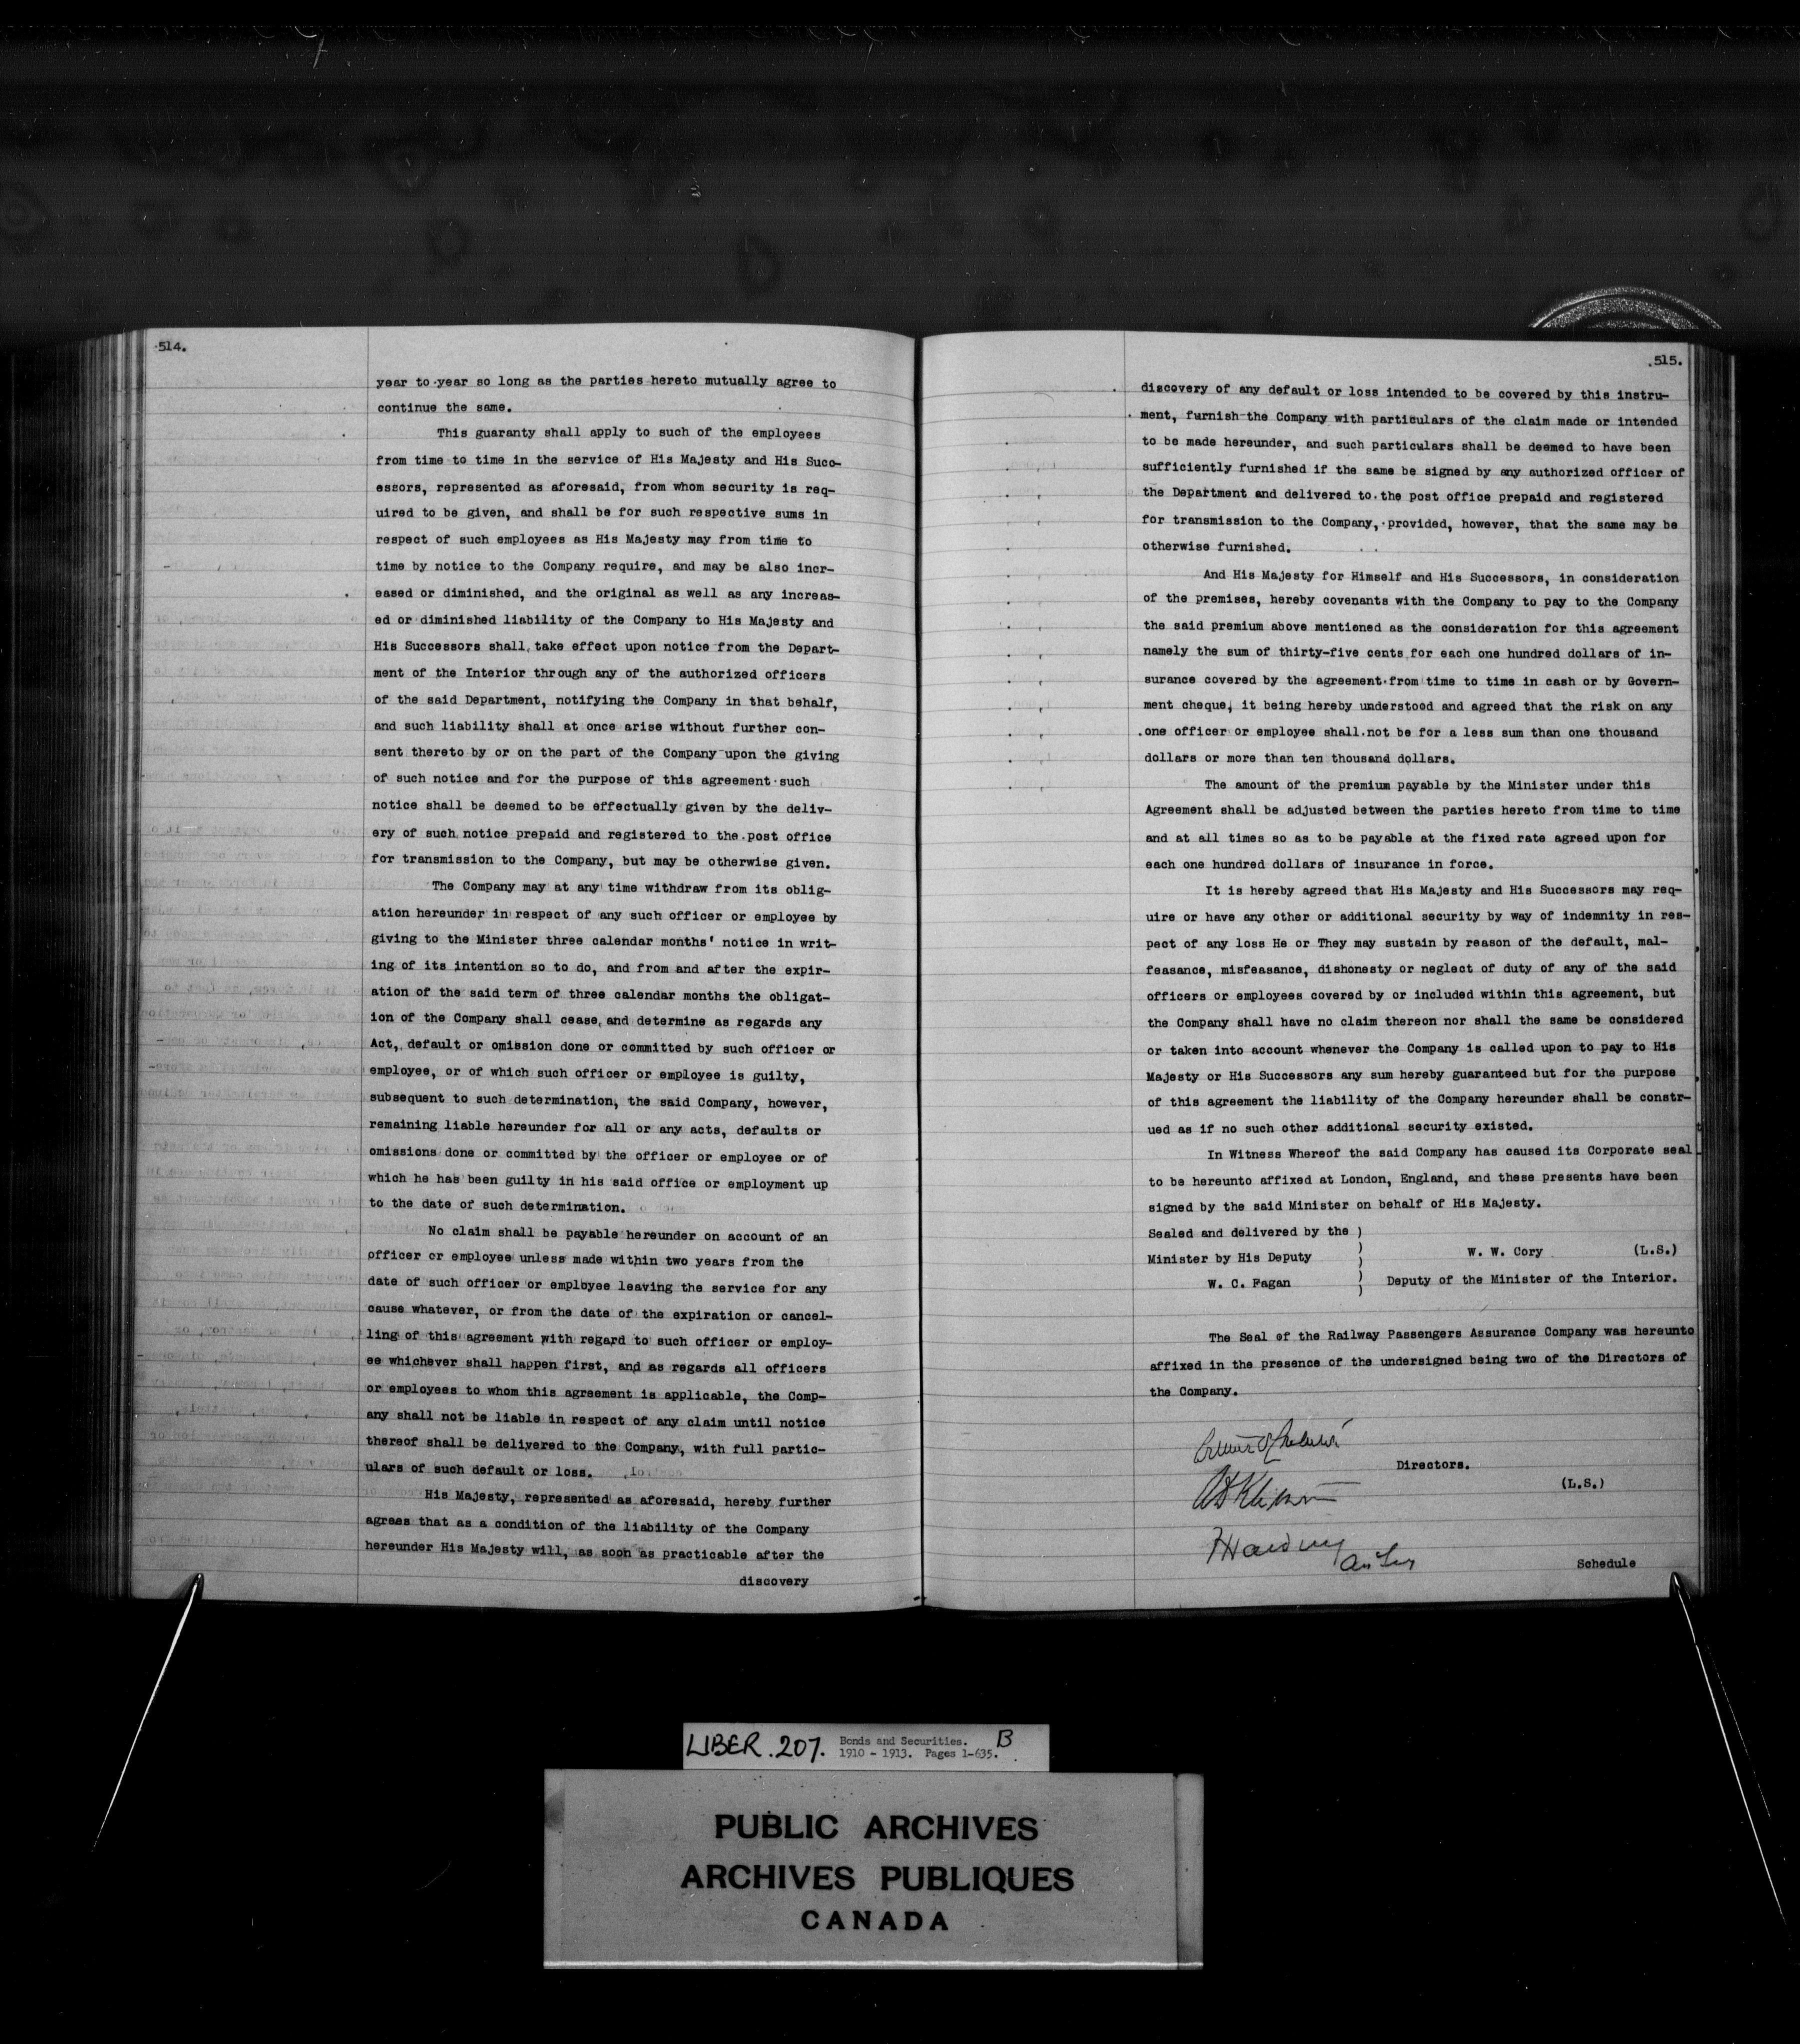 514.
year to year so long as the parties hereto mutually agree to
continue the same.
This guaranty shall apply to such of the employees
from time to time in the service of His Majesty and His Succ-
essors, represented as aforesaid, from whom security is req-
uired to be given, and shall be for such respective sums in
respect of such employees as His Majesty may from time to
time by notice to the Company require, and may be also incr-
eased or diminished, and the original as well as any increas-
ed or diminished liability of the Company to His Majesty and
His Successors shall take effect upon notice from the Depart-
ment of the Interior through any of the authorized officers
of the said Department, notifying the Company in that behalf,
and such liability shall at once arise without further con-
sent thereto by or on the part of the Company upon the giving
of such notice and for the purpose of this agreement such
notice shall be deemed to be effectually given by the deliv-
ery of such notice prepaid and registered to the post office
for transmission to the Company, but may be otherwise given.
The Company may at any time withdraw from its oblig-
ation hereunder in respect of any such officer or employee by
giving to the Minister three calendar months' notice in writ-
ing of its intention so to do, and from and after the expir-
ation of the said term of three calendar months the obligat-
ion of the Company shall cease and determine as regards any
Act, default or omission done or committed by such officer or
employee, or of which such officer or employee is guilty,
subsequent to such determination, the said Company, however,
remaining liable hereunder for all or any acts, defaults or
omissions done or committed by the officer or employee or of
which he has been guilty in his said office or employment up
to the date of such determination.
No claim shall be payable hereunder on account of an
officer or employee unless made within two years from the
date of such officer or employee leaving the service for any
cause whatever, or from the date of the expiration or cancel-
ling of this agreement with regard to such officer or employ-
ee whichever shall happen first, and as regards all officers
or employees to whom this agreement is applicable, the Comp-
any shall not be liable in respect of any claim until notice
thereof shall be delivered to the Company, with full partic-
ulars of such default or loss.
His Majesty, represented as aforesaid, hereby further
agrees that as a condition of the liability of the Company
hereunder His Majesty will, as soon as practicable after the
discovery
515.
discovery of any default or loss intended to be covered by this instru-
ment, furnish the Company with particulars of the claim made or intended
to be made hereunder, and such particulars shall be deemed to have been
sufficiently furnished if the same be signed by any authorized officer of
the Department and delivered to the post office prepaid and registered
for transmission to the Company, provided, however, that the same may be
otherwise furnished.
And His Majesty for Himself and His Successors, in consideration
of the premises, hereby covenants with the Company to pay to the Company
the said premium above mentioned as the consideration for this agreement
namely the sum of thirty-five cents for each one hundred dollars of in-
surance covered by the agreement from time to time in cash or by Govern-
ment cheque, it being hereby understood and agreed that the risk on any
one officer or employee shall not be for a less sum than one thousand
dollars or more than ten thousand dollars.
The amount of the premium payable by the Minister under this
Agreement shall be adjusted between the parties hereto from time to time
and at all times so as to be payable at the fixed rate agreed upon for
each one hundred dollars of insurance in force.
It is hereby agreed that His Majesty and His Successors may req-
uire or have any other or additional security by way of indemnity in res-
pect of any loss He or They may sustain by reason of the default, mal-
feasance, misfeasance, dishonesty or neglect of duty of any of the said
officers or employees covered by or included within this agreement, but
the Company shall have no claim thereon nor shall the same be considered
or taken into account whenever the Company is called upon to pay to His
Majesty or His Successors any sum hereby guaranteed but for the purpose
of this agreement the liability of the Company hereunder shall be constr-
ued as if no such other additional security existed.
In Witness Whereof the said Company has caused its Corporate seal
to be hereunto affixed at London, England, and these presents have been
signed by the said Minister on behalf of His Majesty.
Sealed and delivered by the )
Minister by His Deputy ) W. W. Cory (L.S.)
W. C. Fagan ) Deputy of the Minister of the Interior.
The Seal of the Railway Passengers Assurance Company was hereunto
affixed in the presence of the undersigned being two of the Directors of
the Company.
Directors.
(L.S.)
Schedule
LIBER. 207. Bonds and Securities. B
1910 - 1913. Pages 1-635.
PUBLIC ARCHIVES
ARCHIVES PUBLIQUES
CANADA